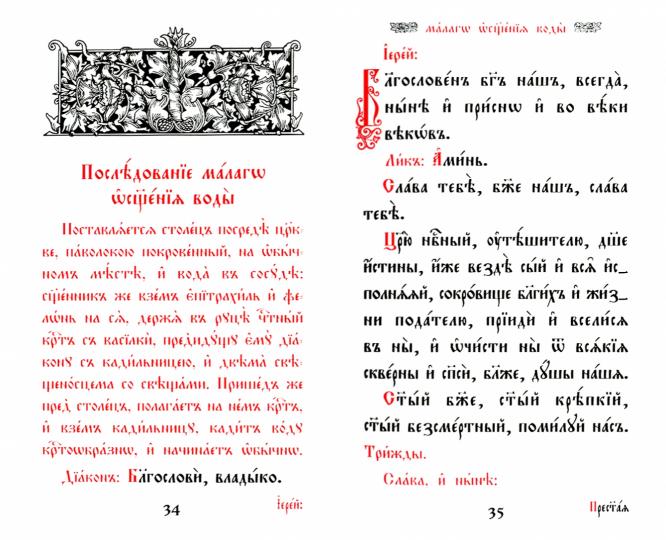 Послѣ́дованїе ма́лагѡ
ѡ҆сщ҃е́нїѧ воды̀
Поставлѧ́етсѧ столе́цъ посредѣ̀ цр҃к-
ве, паволокою покрове́нный, на ѡ҆бы́ч-
номъ мѣ́стѣ, и҆ вода̀ въ сосꙋ́дѣ:
сщ҃е́нникъ же взе́мъ є҆пїтрахи́ль и҆ фе-
лѡ́нь на сѧ̀, держа̀ въ рꙋцѣ̀ чⷭ҇тны́й
крⷭ҇тъ съ васїлкѝ, предидꙋ́щꙋ є҆мꙋ̀ дїа́-
конꙋ съ кади́льницею, и҆ двѣма̀ свѣ-
щено́сцема со свѣща́ми. Прише́дъ же
пред̾ столе́цъ, полага́етъ на не́мъ крⷭ҇тъ,
и҆ взе́мъ кади́льницꙋ, кади́тъ во́дꙋ
крⷭ҇тоѡбра́знѡ, и҆ начина́етъ ѡ҆бы́чнѡ.
Дїа́конъ: Бл҃гословѝ, влады́ко.
34
І҆ере́й:
ма́лагѡ ѡ҆сщ҃е́нїѧ воды̀
І҆ере́й:
Бл҃гослове́нъ бг҃ъ на́шъ, всегда̀,
ны́нѣ и҆ при́снѡ и҆ во вѣ́ки
вѣкѡ́въ.
Ли́къ: А҆ми́нь.
Сла́ва тебѣ̀, бж҃е на́шъ, сла́ва
тебѣ̀.
Цр҃ю̀ нбⷭ҇ный, ᲂу҆тѣ́шителю, дш҃е
и҆́стины, и҆́же вездѣ̀ сы́й и҆ всѧ̑ и҆с_
полнѧ́ѧй, сокро́вище бл҃ги́хъ и҆ жи́з_
ни пода́телю, прїидѝ и҆ всели́сѧ
въ ны̀, и҆ ѡ҆чи́сти ны̀ ѿ всѧ́кїѧ
скве́рны и҆ сп҃сѝ, бл҃же, дꙋ́шы на́шѧ.
Ст҃ы́й бж҃е, ст҃ы́й крѣ́пкїй,
ст҃ы́й безсме́ртный, поми́лꙋй на́съ.
Три́жды.
Сла́ва, и҆ ны́нѣ:
35
Прест҃а́ѧ